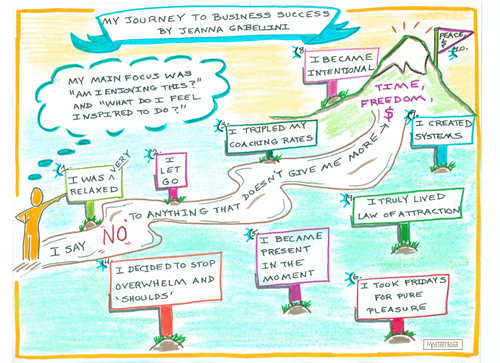 MY JOURNEY TO BUSINESS SUCCESS
BY JEANNA GABELLINI
MY MAIN FOCUS WAS
"AM I ENJOYING THIS?"
AND "WHAT DO I FEEL
INSPIRED TO DO?"
1.
I WAS VERY
RELAXED
2.
I
LET
GO
3.
I TRIPLED MY
COACHING RATES
4.
I DECIDED TO STOP
OVERWHELM AND
'SHOULDS'
5.
I BECAME
PRESENT
IN THE
MOMENT
6.
I TOOK FRIDAYS
FOR PURE
PLEASURE
7.
I TRULY LIVED
LAW OF ATTRACTION
8.
I BECAME
INTENTIONAL
9.
I CREATED
SYSTEMS
10.
PEACE,
$
TIME,
FREEDOM,
$
I SAY NO TO ANYTHING THAT DOESN'T GIVE ME MORE